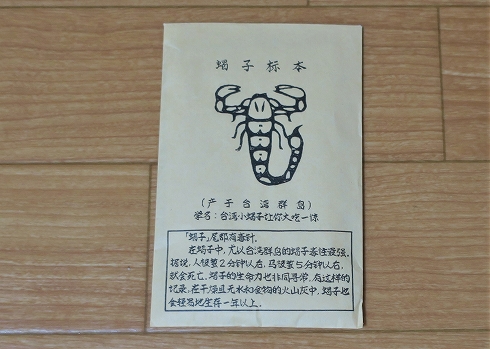 蝎子标本
(产于台湾群岛)
学名:台湾小蝎子让你大吃一惊
「蝎子」尾部有毒针。
在蝎子中,尤以台湾群岛的蝎子毒性最强。
据说,人被蜇2分钟以后,马被蜇5分钟以后,
就会死亡。蝎子的生命力也非同寻常,有这样的
记录,在干燥且无水和食物的火山灰中,蝎子也
会轻易地生存一年以上。